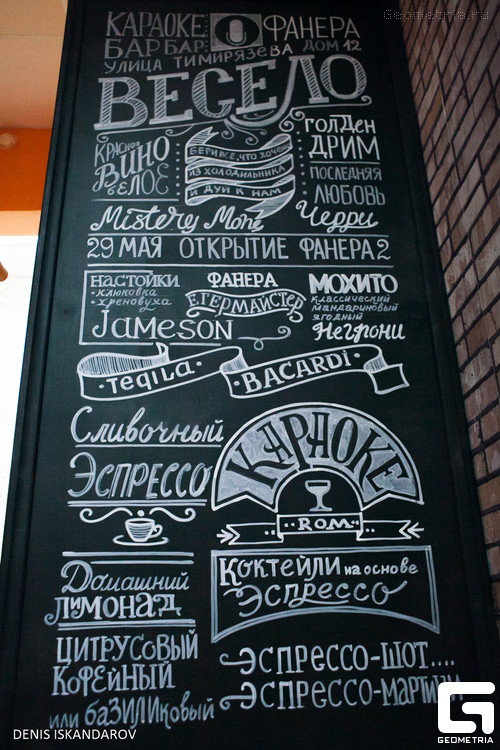 Geometria.ru
КАРАОКЕ ФАНЕРА
БАР БАР
УЛИЦА ТИМИРЯЗЕВА ДОМ 12
ВЕСЕЛО
КРАСНОЕ
ВИНО
БЕЛОЕ
БЕРИ ВСЕ, ЧТО ХОЧЕШЬ
ИЗ ХОЛОДИЛЬНИКА
И ДУЙ К НАМ
ГОЛДЕН
ДРИМ
ПОСЛЕДНЯЯ
ЛЮБОВЬ
Mistery Mone
Черри
29 МАЯ ОТКРЫТИЕ ФАНЕРА 2
НАСТОЙКИ
-КЛЮКОВКА
-ХРЕНОВУХА
JAMESON
ФАНЕРА
ЕГЕРМАЙСТЕР
МОХИТО
КЛАССИЧЕСКИЙ
МАНДАРИНОВЫЙ
ЯГОДНЫЙ
Негрони
TEQILA · BACARDI ·
Сливочный
ЭСПРЕССО
КАРАОКЕ
ROM
Домашний
ЛИМОНАД
ЦИТРУСОВЫЙ
КОФЕЙНЫЙ
или баЗИЛИКовый
КОКТЕЙЛИ на основе
Эспрессо
ЭСПРЕССО-ШОТ....
ЭСПРЕССО-МАРТИНИ
DENIS ISKANDAROV
GEOMETRIA